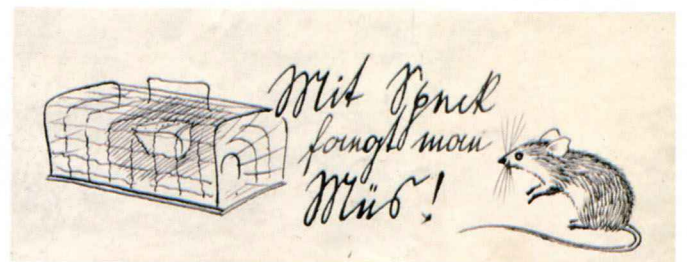 Mit Speck
fangt man
Müs!